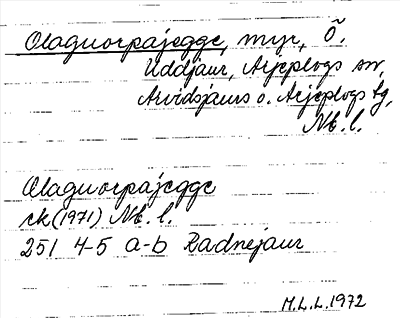 Olaguorpajegge, myr, Ö.
Uddjaur, Arjeplogs sn,
Arvidsjaurs o. Arjeplogs tg,
Nb. l.
Olaguorpajegge
ek (1971) Nb. l.
251 4-5 a-b Radnejaur
M.L.L. 1972